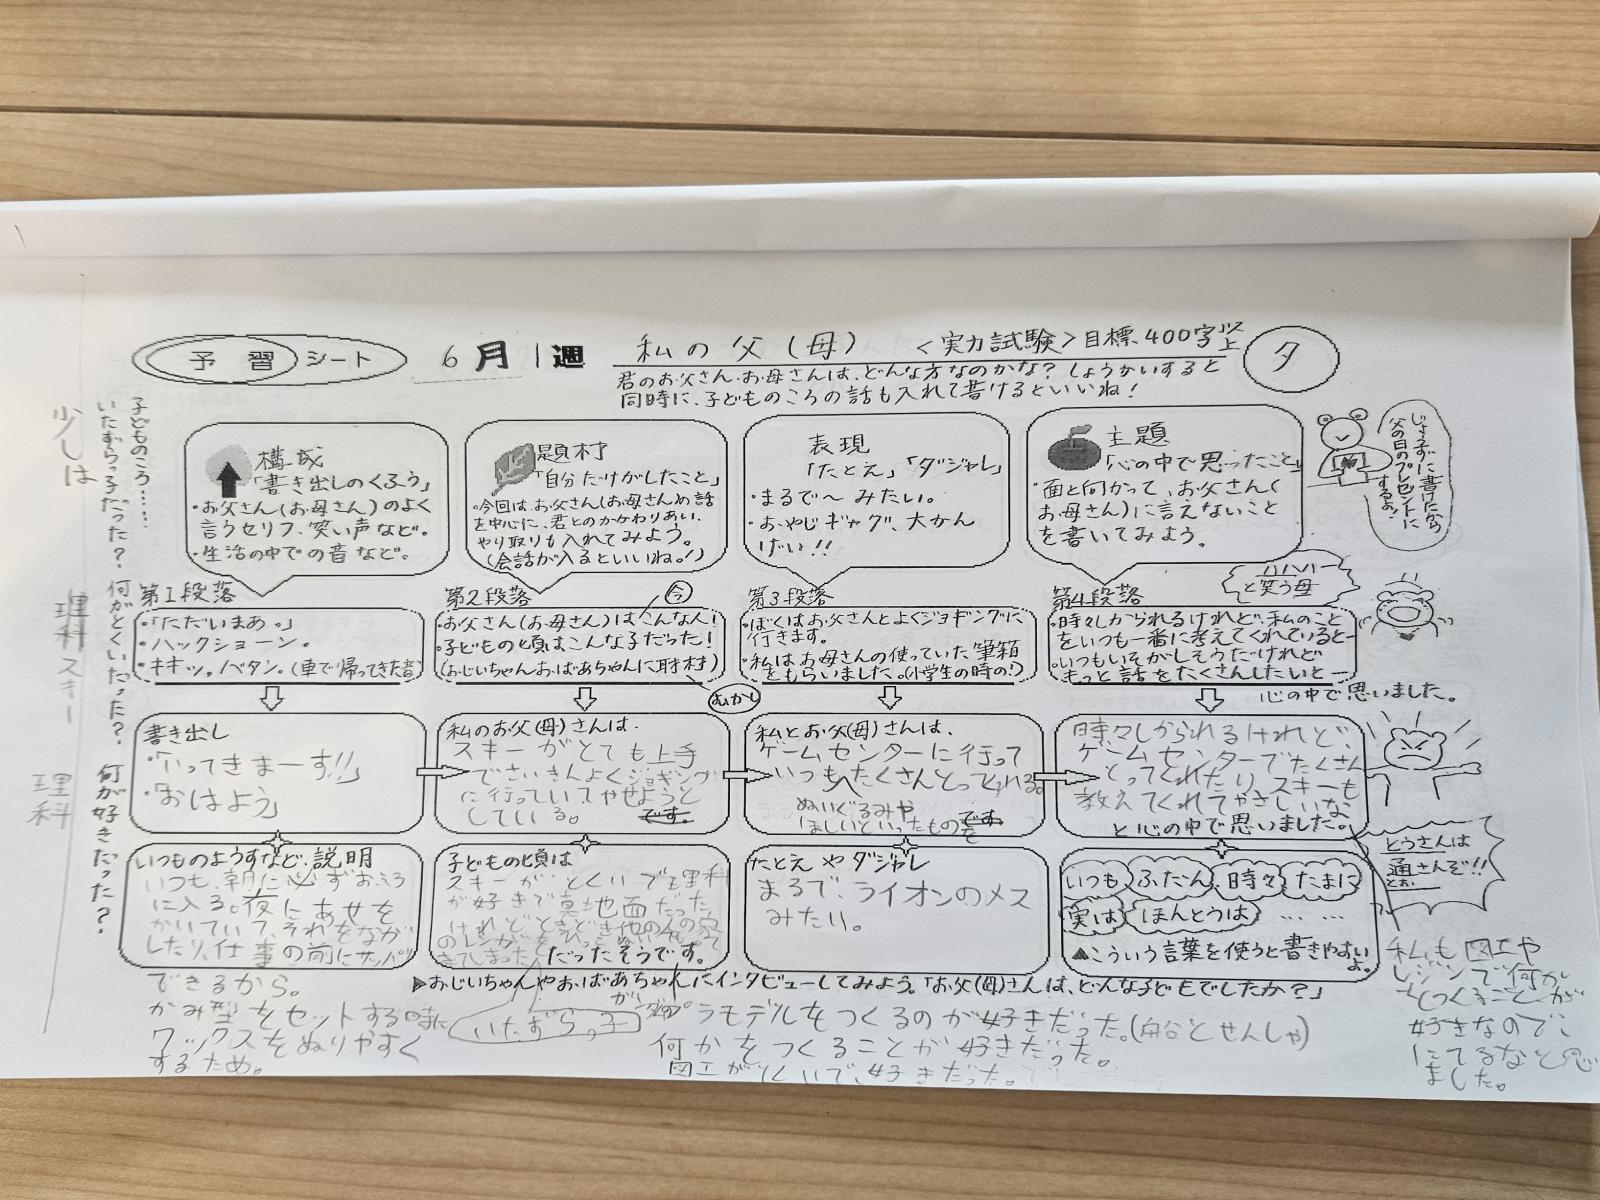 予習シート 6月1週 私の父(母) <実力試験>目標400字以上 夕
君のお父さん・お母さんは、どんな方なのかな?しょうかいすると
同時に、子どものころの話も入れて書けるといいね!
構成
「書き出しのくふう」
・お父さん(お母さん)のよく
言うセリフ、笑い声など。
・生活の中での音など。
題材
「自分だけがしたこと」
・今回はお父さん(お母さん)の話
を中心に、君とのかかわりあい、
やり取りも入れてみよう。
(会話が入るといいね。!)
表現
「たとえ」「ダジャレ」
・まるで〜みたい。
・おやじギャグ、大かん
げい!!
主題
「心の中で思ったこと」
・面と向かって、お父さん(
お母さん)に言えないこと
を書いてみよう。
じょうずに書けたから
父の日のプレゼントに
するよ!
ハハハハ
と笑う母
第1段落
・「ただいまあ。」
・ハックショーン。
・キキッ。バタン。(車で帰ってきた音)
第2段落
今
お父さん(お母さん)はこんな人!
子どもの頃はこんな子だった!
(おじいちゃんおばあちゃんに取材)
むかし
第3段落
・ぼくはお父さんとよくジョギングに
行きます。
・私はお母さんの使っていた筆箱
をもらいました。(小学生の時の!)
第4段落
・時々しかられるけれど、私のこと
をいつも一番に考えてくれていると―
・いつもいそがしそうだけれど
もっと話をたくさんしたいと―
心の中で思いました。
書き出し
・「いってきまーす!!」
・「おはよう」
私のお父(母)さんは、
スキーがとても上手
でさいきんよくジョギング
に行っていてやせようと
している。 です。
私とお父(母)さんは、
ゲームセンターに行って
いつもたくさんとってくれる。
ぬいぐるみや
ほしいといったものを です
時々しかられるけれど、
ゲームセンターでたくさん
とってくれたりスキーも
教えてくれてやさしいな
と心の中で思いました。
とうさんは
通さんぞ!!
とお
いつものようすなど・説明
いつも、朝に必ずおふろ
に入る。夜にあせを
かいていて、それをなが
したり、仕事の前にサッパリ
できるから。
かみ型をセットする時に
ワックスをぬりやすく
するため。
子どもの頃は
スキーが、とくいで理科
が好きで真地面だった
けれどときどき他の人の家
のレンガを
きてしまった だったそうです。
いたずらっ子
たとえやダジャレ
まるで、ライオンのメス
みたい。
いつも ふだん 時々 たまに
実は ほんとうは … …
▲こういう言葉を使うと書きやすい
よ。
▶おじいちゃんやおばあちゃんにインタビューしてみよう。「お父(母)さんは、どんな子どもでしたか?」
プラモデルをつくるのが好きだった。(船とせんしゃ)
何かをつくることが好きだった。
図工がとくいで、好きだった。
私も図工や
レジンで何か
つくることが
好きなので、
にてるなと思い
ました。
子どものころ……
いたずらっ子だった? 何がとくいだった? 何が好きだった?
少しは
理科 スキー
理科